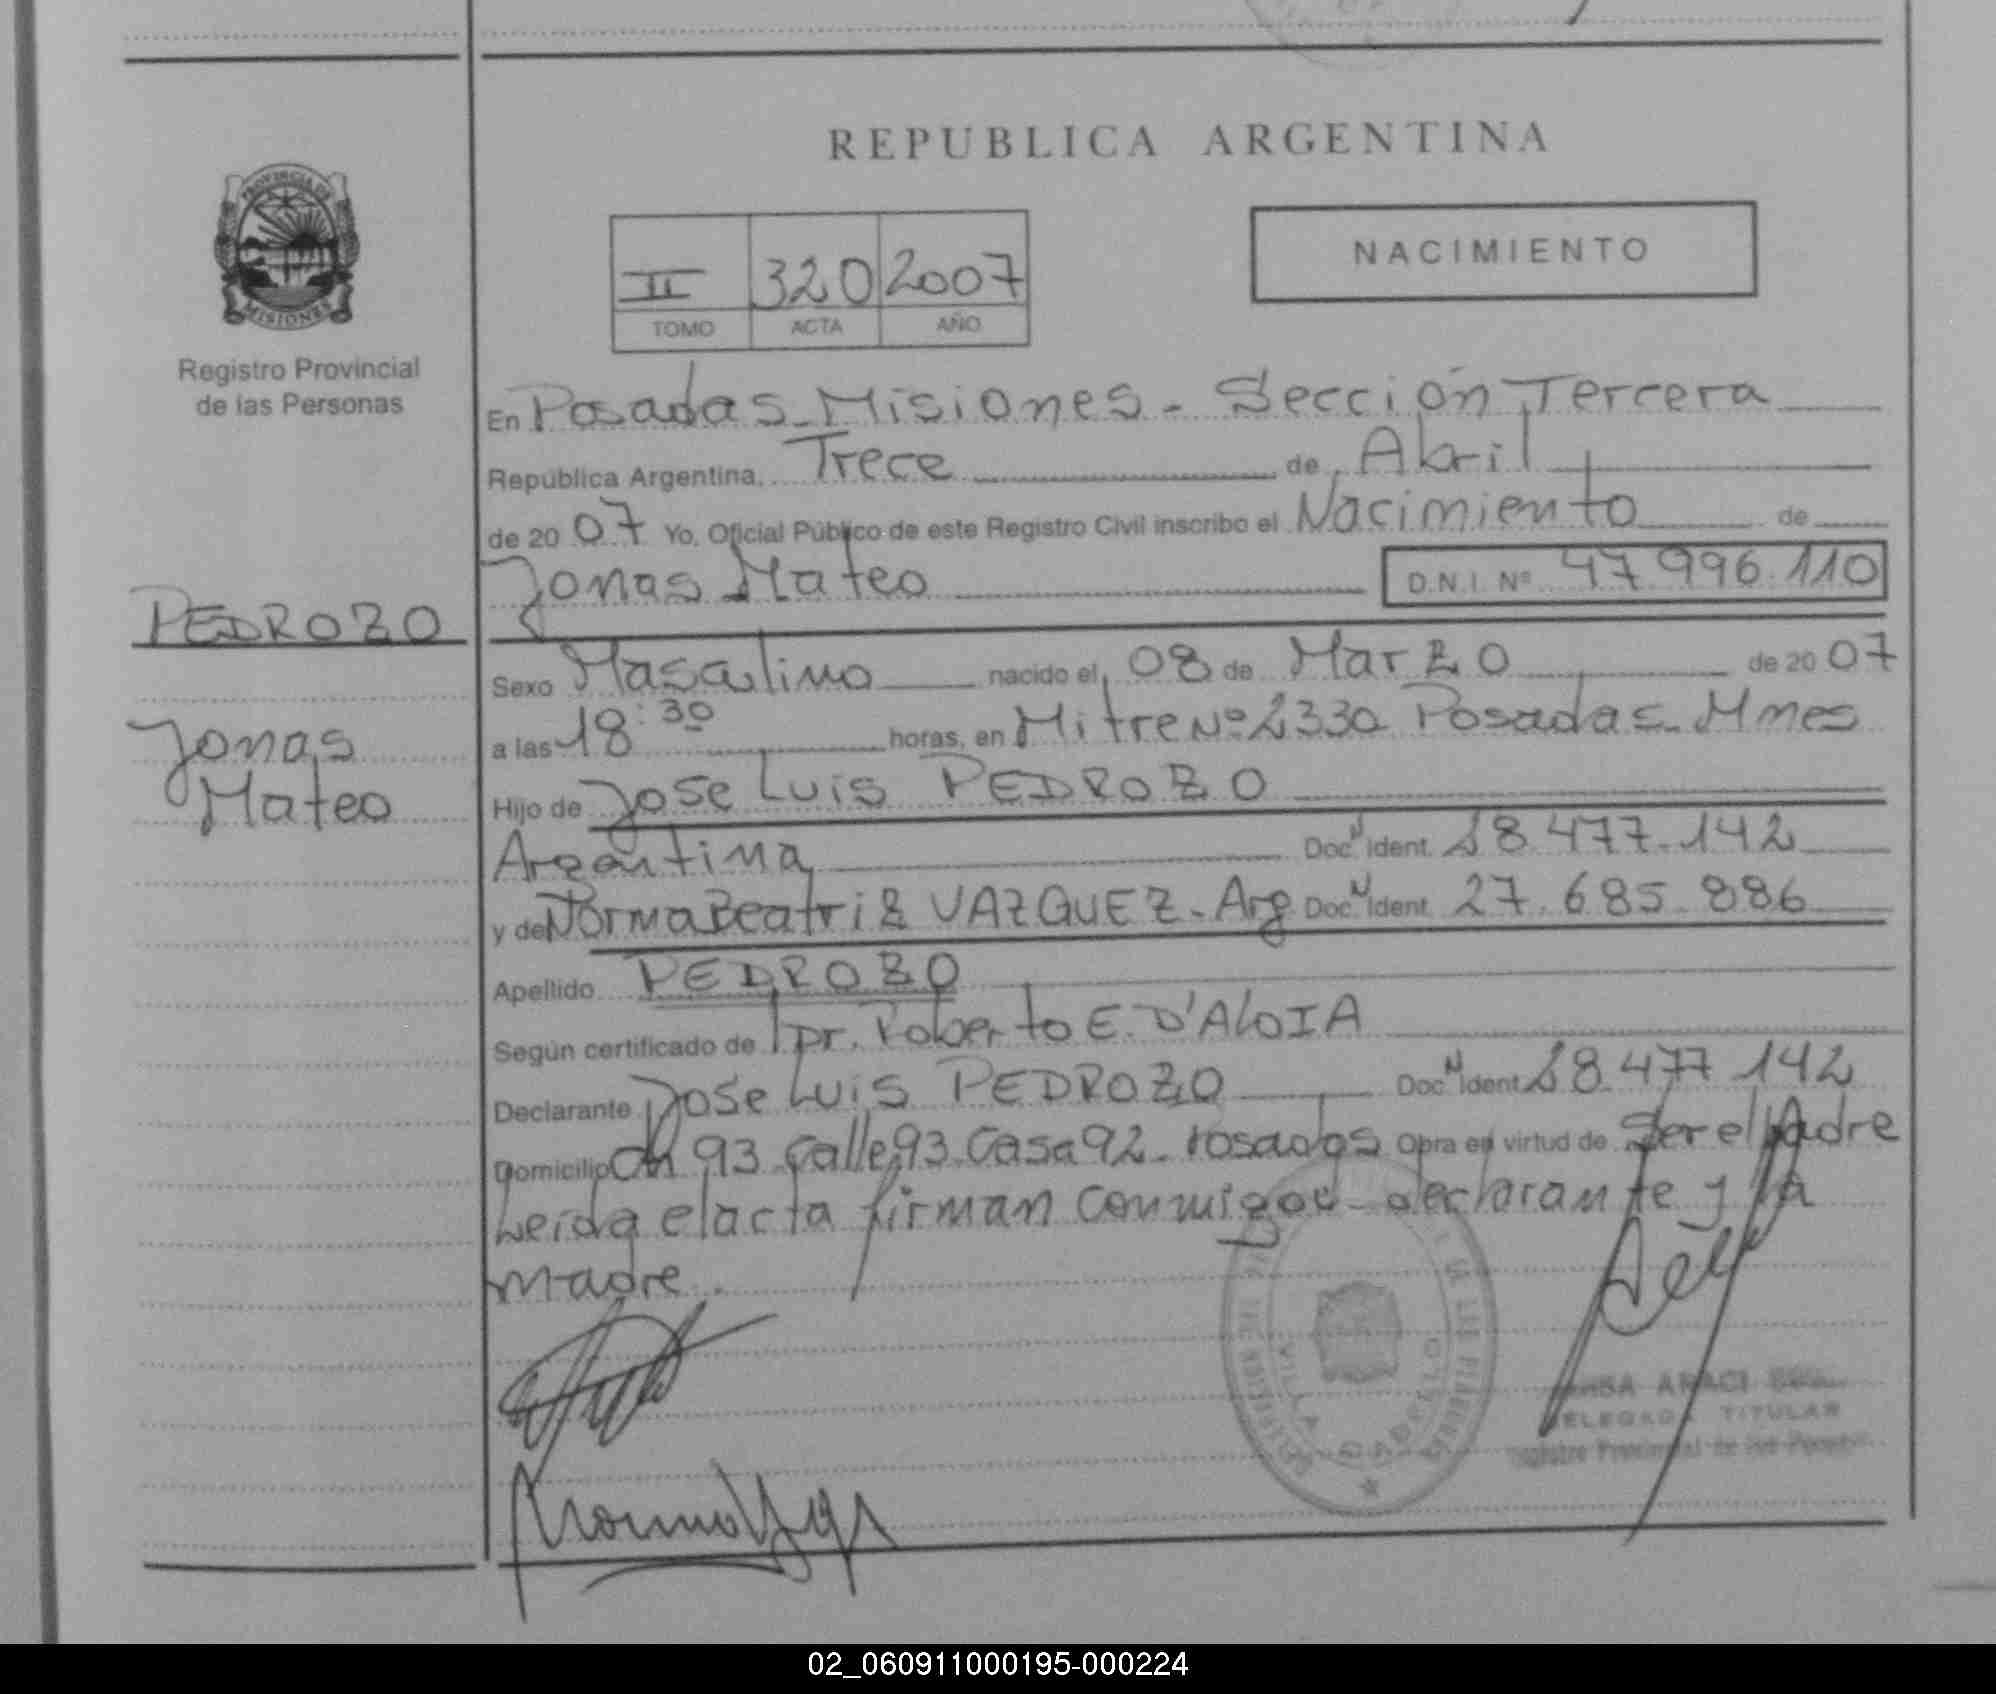 REPUBLICA ARGENTINA
PROVINCIA DE
MISIONES
Registro Provincial
de las Personas
II 320 2007
TOMO ACTA AÑO
NACIMIENTO
En Posadas Misiones - Sección Tercera
República Argentina, Trece de Abril
de 20 07 Yo, Oficial Público de este Registro Civil inscribo el Nacimiento de
Jonas Mateo D.N.I. Nº 47.996.110
PEDROZO
Jonas
Mateo
Sexo Masculino nacido el 08 de Marzo de 20 07
a las 18:30 horas, en Mitre Nº 2330 Posadas Mnes
Hijo de Jose Luis PEDROZO
Argentina Doc. N Ident. 28.477.142
y de Norma Beatriz VAZQUEZ - Arg Doc. N Ident. 27.685.886
Apellido PEDROZO
Según certificado de Dr. Roberto E. D'ALOIA
Declarante Jose Luis PEDROZO Doc. N Ident 28.477.142
Domicilio Ch 93 Calle 93 Casa 92 - Posadas Obra en virtud de Ser el Padre
Leida el acta firman conmigo declarante y la
madre.
VILLA CABELLO
DELEGADA TITULAR
Registro Provincial de las Personas
02_060911000195-000224